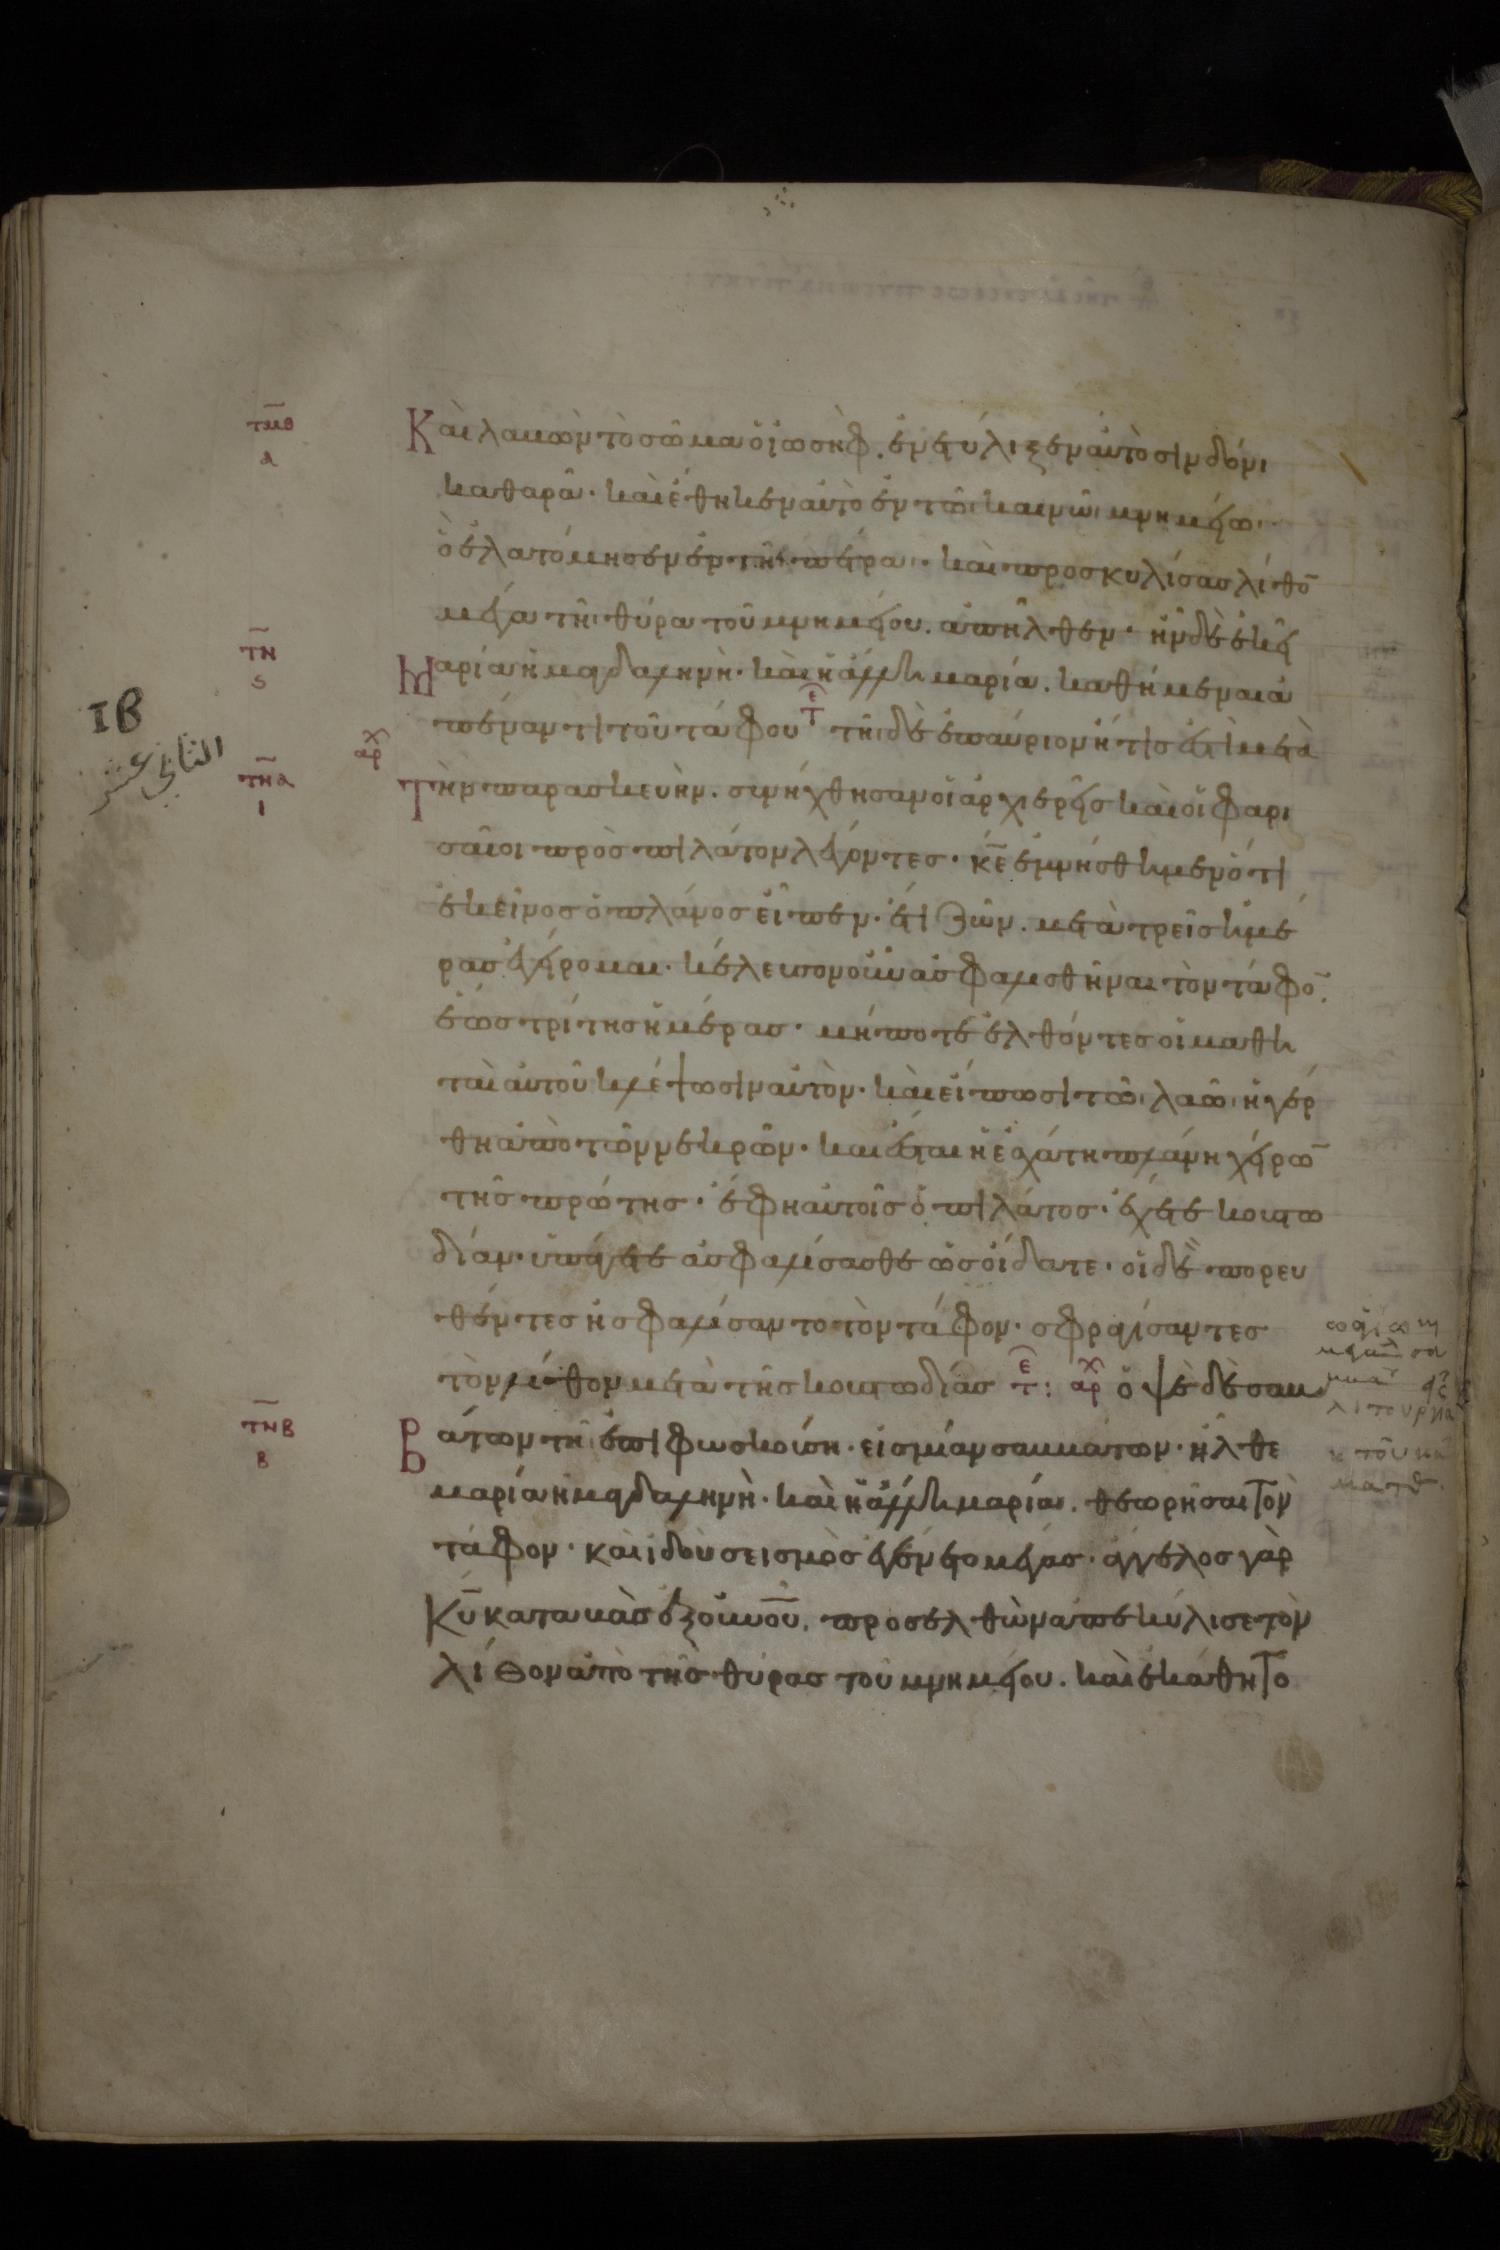 τμθ
α
Καὶ λαμβὼν τὸ σῶμα ὁ ἰωσὴφ. ἐνετύλιξεν αὐτὸ σινδόνι
καθαρᾶ· καὶ ἔθηκεν αὐτὸ ἐν τῶι καινῶι μνημείω·
ὃ ἐλατόμησεν ἐν τῆι πέτραι· καὶ προσκυλίσας λίθο̄
μέγα τῆι θύρα τοῦ μνημείου. ἀπῆλθεν· ἦν δὲ ἐκεῖ
τν
ς
Μαρία ἡ μαγδαληνὴ· καὶ ἡ ἄλλη μαρία. καθήμεναι ἀ
πέναντι τοῦ τάφου τε τῆι δὲ ἐπαύριον ἥτις ἐστὶ μετὰ
ΙΒ
الثاني عشر
αρχ
τνα
ι
Τὴν παρασκευὴν. συνήχθησαν οἱ ἀρχιερεῖς καὶ οἱ φαρι
σαῖοι πρὸς πιλάτον λέγοντες· κε̄ ἐμνήσθημεν ὅτι
ἐκεῖνος ὁ πλάνος εἶπεν· ἔτι ζῶν. μετὰ τρεῖς ἡμέ
ρας ἐγείρομαι· κέλευσον οὖν ἀσφαλισθῆναι τὸν τάφο̄.
ἕως τρίτης ἡμέρας· μήποτε ἐλθόντες οἱ μαθη
ταὶ αὐτοῦ κλέψωσιν αὐτὸν· καὶ εἴπωσι τῶι λαῶι ἠγέρ
θη ἀπὸ τῶν νεκρῶν· καὶ ἔσται ἡ ἐσχάτη πλάνη χείρω̄
τῆς πρώτης· ἔφη αὐτοῖς ὁ πιλάτος· ἔχετε κουστω
δίαν· ὑπάγετε ἀσφαλίσασθε ὡς οἴδατε· οἱ δὲ πορευ
θέντες ἠσφαλίσαντο τὸν τάφον· σφραγίσαντες
τὸν λίθον μετὰ τῆς κουστωδίας τε: αρχ ὀψὲ δὲ σαμ
τνβ
β
Βάτων τῆι ἐπιφωσκούση· εἰς μίαν σαμμάτων· ἦλθε
μαρία ἡ μαγδαληνὴ· καὶ ἡ ἄλλη μαρία. θεωρῆσαι τὸν
τάφον· καὶ ἰδοὺ σεισμὸς ἐγένετο μέγας· ἄγγελος γὰρ
Κῡ καταβὰς ἐξ οὐνοῦ. προσελθὼν ἀπεκύλισε τὸν
λίθον ἀπὸ τῆς θύρας τοῦ μνημείου. καὶ ἐκάθητο